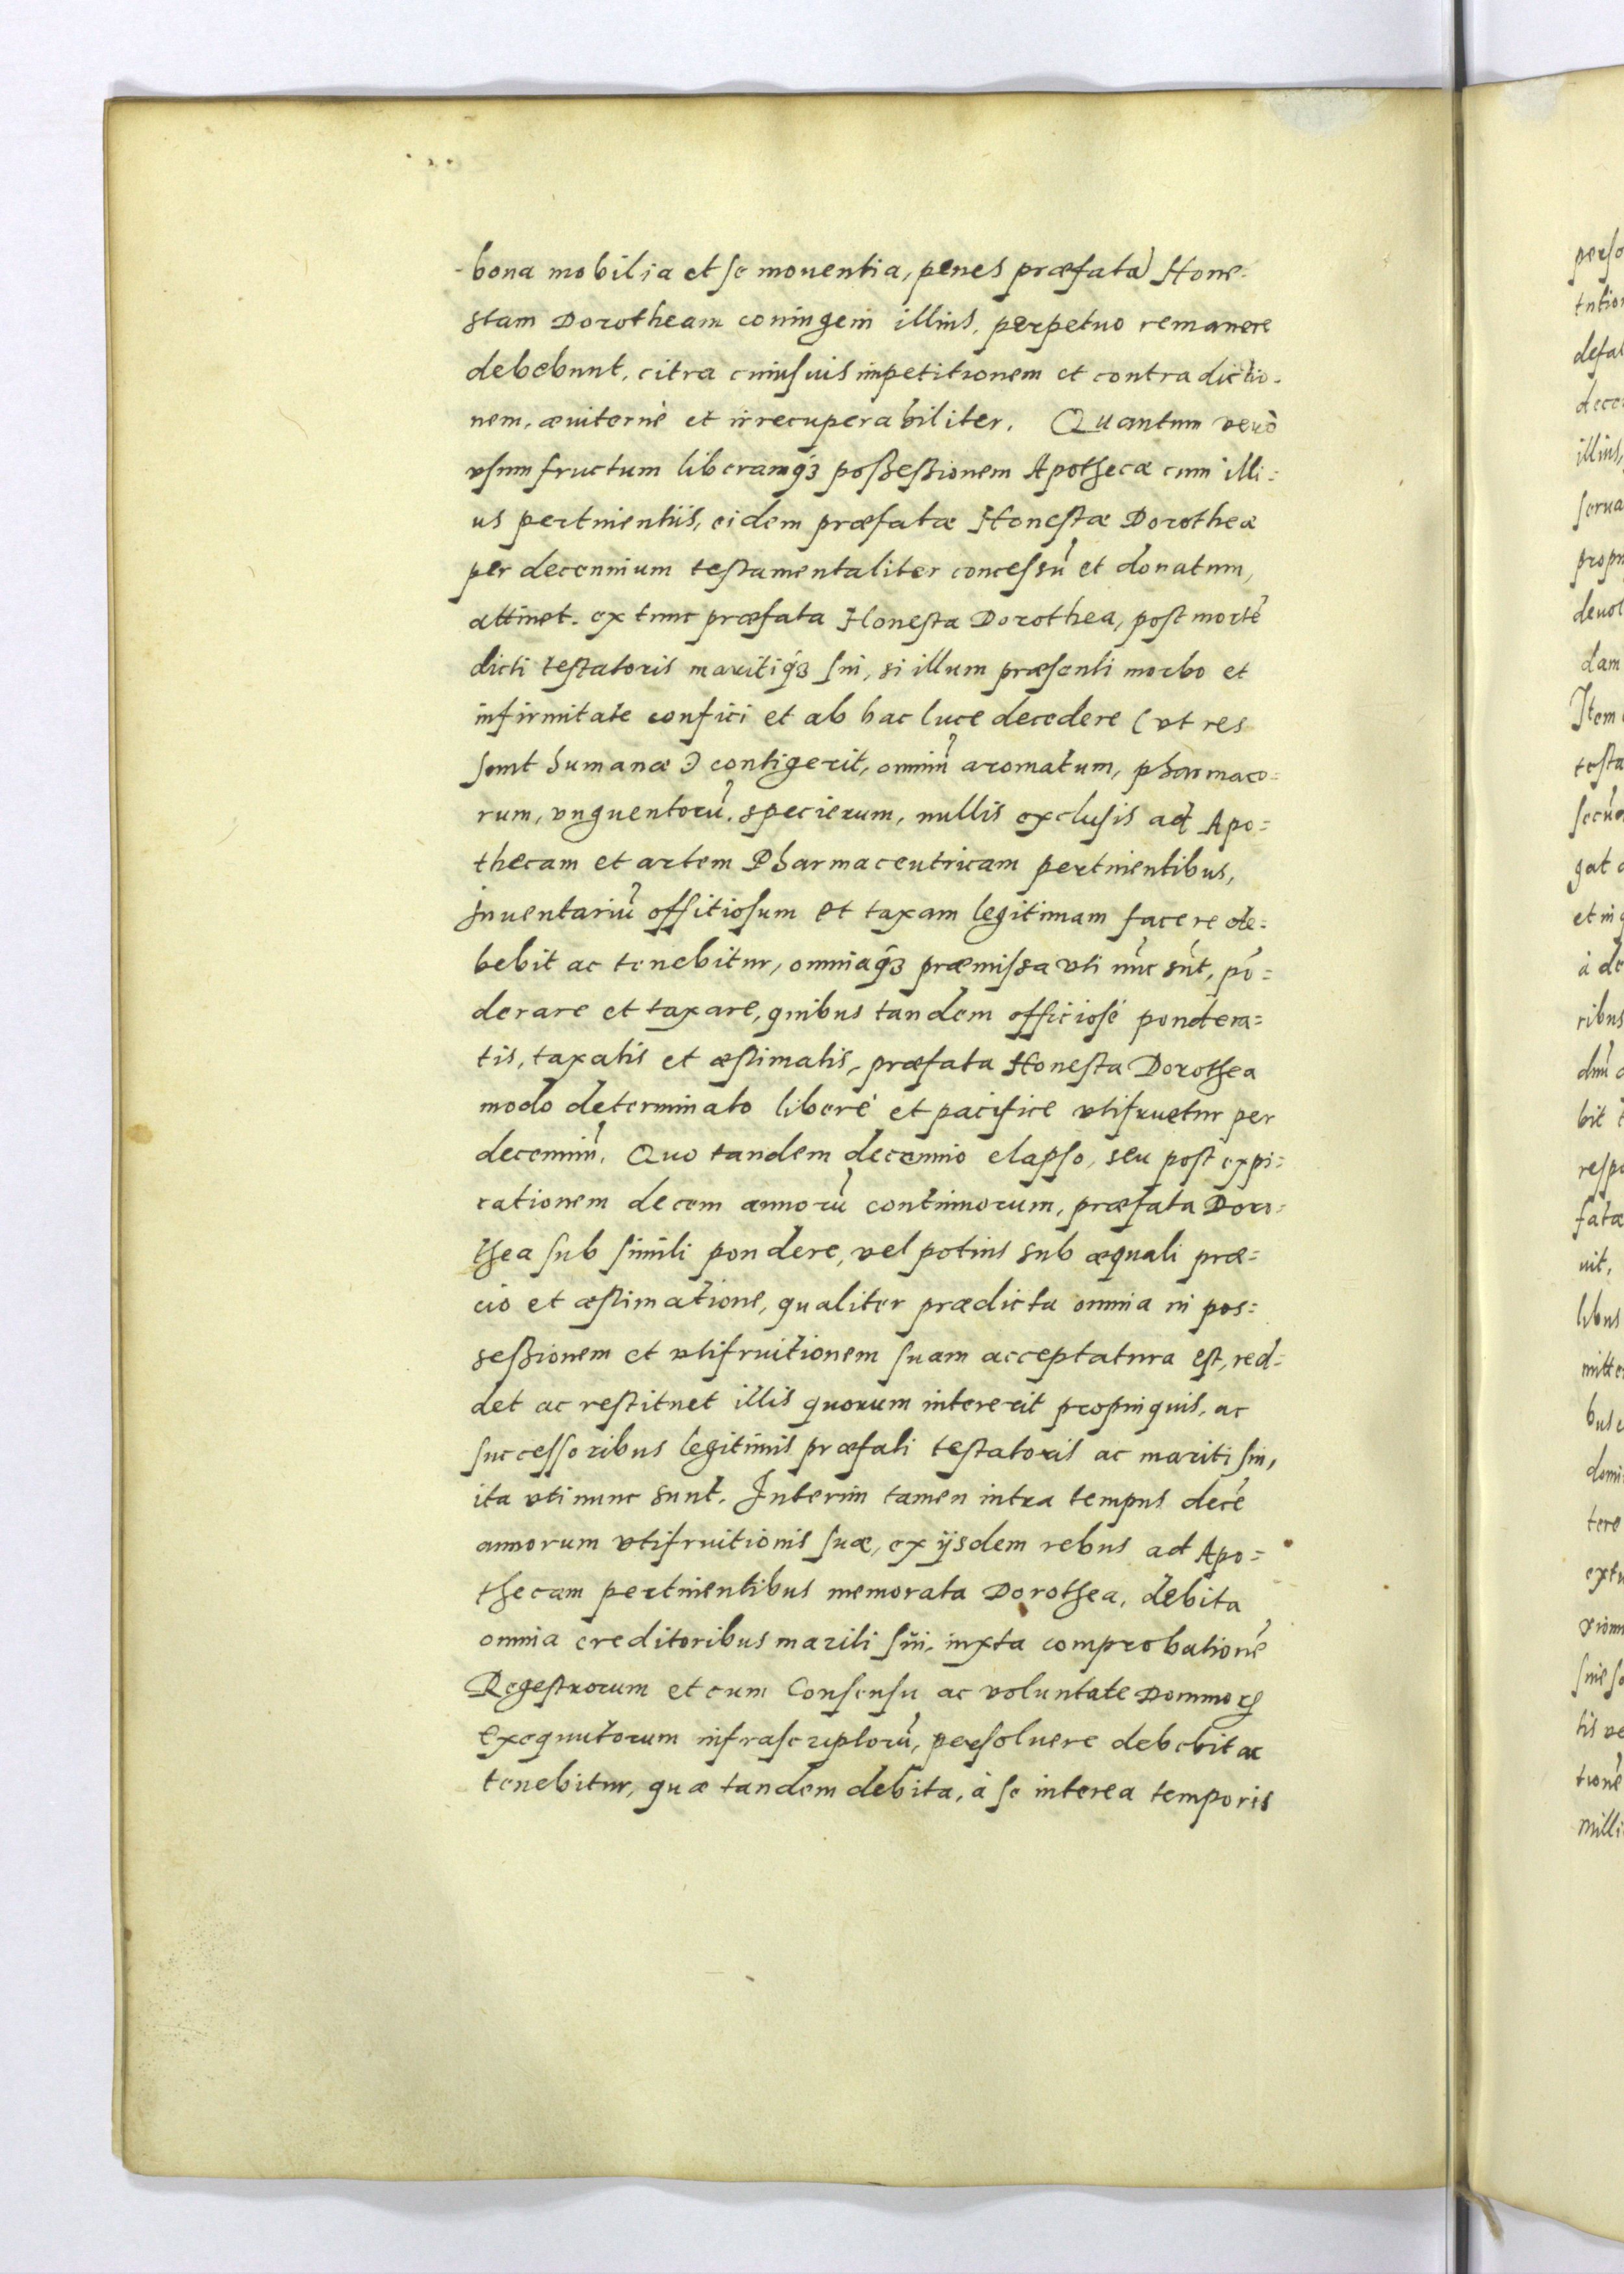 bona mobilia et se mouentia, penes præfatã Hone-
stam Dorotheam coniugem illius, perpetuo remanere
debebunt, citra cuiusuis impetitionem et contradictio-
nem, æuiternè et irrecuperabiliter. Quantum verò
vsumfructum liberamqꝫ possessionem Apothecæ cum illi=
us pertinentiis, eidem præfatæ Honestæ Dorotheæ
per decennium testamentaliter concessũ et donatum,
attinet. ex tunc præfata Honesta Dorothea, post mortẽ
dicti testatoris maritiqꝫ sui, si illum præsenti morbo et
infirmitate confici et ab hac luce decedere (vt res
sunt humanæ) contigerit, omniũ aromatum, pharmaco=
rum, vnguentorũ, specierum, nullis exclusis ad Apo=
thecam et artem Pharmaceutricam pertinentibus,
inuentariũ offitiosum et taxam legitimam facere de=
bebit ac tenebitur, omniaqꝫ præmissa vti nũc sũt, põ=
derare et taxare, quibus tandem officiosè pondera=
tis, taxatis et æstimatis, præfata Honesta Dorothea
modo determinato liberè et pacifice vtifruetur per
decenniũ. Quo tandem decennio elapso, seu post expi=
rationem decem annorũ continuorum, præfata Doro=
thea sub simili pondere, vel potius sub æquali præ=
cio et æstimatione, qualiter prædicta omnia in pos=
sessionem et vtifruitionem suam acceptatura est, red=
det ac restituet illis quorum intererit propinquis, ac
successoribus legitimis præfati testatoris ac mariti sui,
ita vti nunc sunt. Interim tamen intra tempus decẽ
annorum vtifruitionis suæ, ex ijsdem rebus ad Apo=
thecam pertinentibus memorata Dorothea, debita
omnia creditoribus mariti sui, iuxta comprobationẽ
Regestrorum et cum Consensu ac voluntate Dominoꝝ
Exequutorum infrascriptorũ, persoluere debebit ac
tenebitur, quæ tandem debita, à se interea temporis